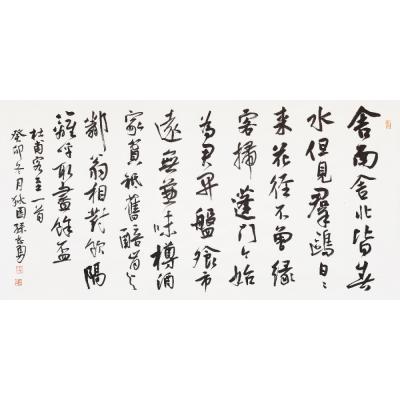 舍南舍北皆春
水但見羣鷗日日
來花徑不曾緣
客掃蓬門今始
為君開盤飧市
遠無兼味樽酒
家貧秖舊醅肯与
鄰翁相對飲隔
籬呼取盡餘盃
杜甫客至一首
癸卯冬月